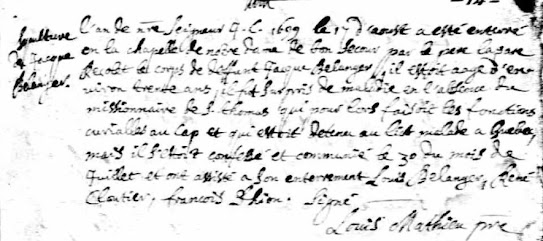 -14-
Sepulture
de Jacque
Belanger.
L'an de nre Seigneur J. C. 1699 le 17 d'aoust a esté enterré
en la chapelle de notre dame de bon Secour par le pere Lazare
le corps de deffunt Jacque Belanger, il estoit aage d'en
viron trente ans, il fut surpris de maladie en l'absence du
missionnaire de S. thomas qui pour lors faisoit les fonctions
curialles au Cap et qui estoit detenu au lict malade a Quebec,
mais il s'étoit confessé et communié le 30 du mois de
Juillet et ont assisté a son enterrement Louis Belanger, René
Cloutier, francois Signé
Louis Mathieu pre